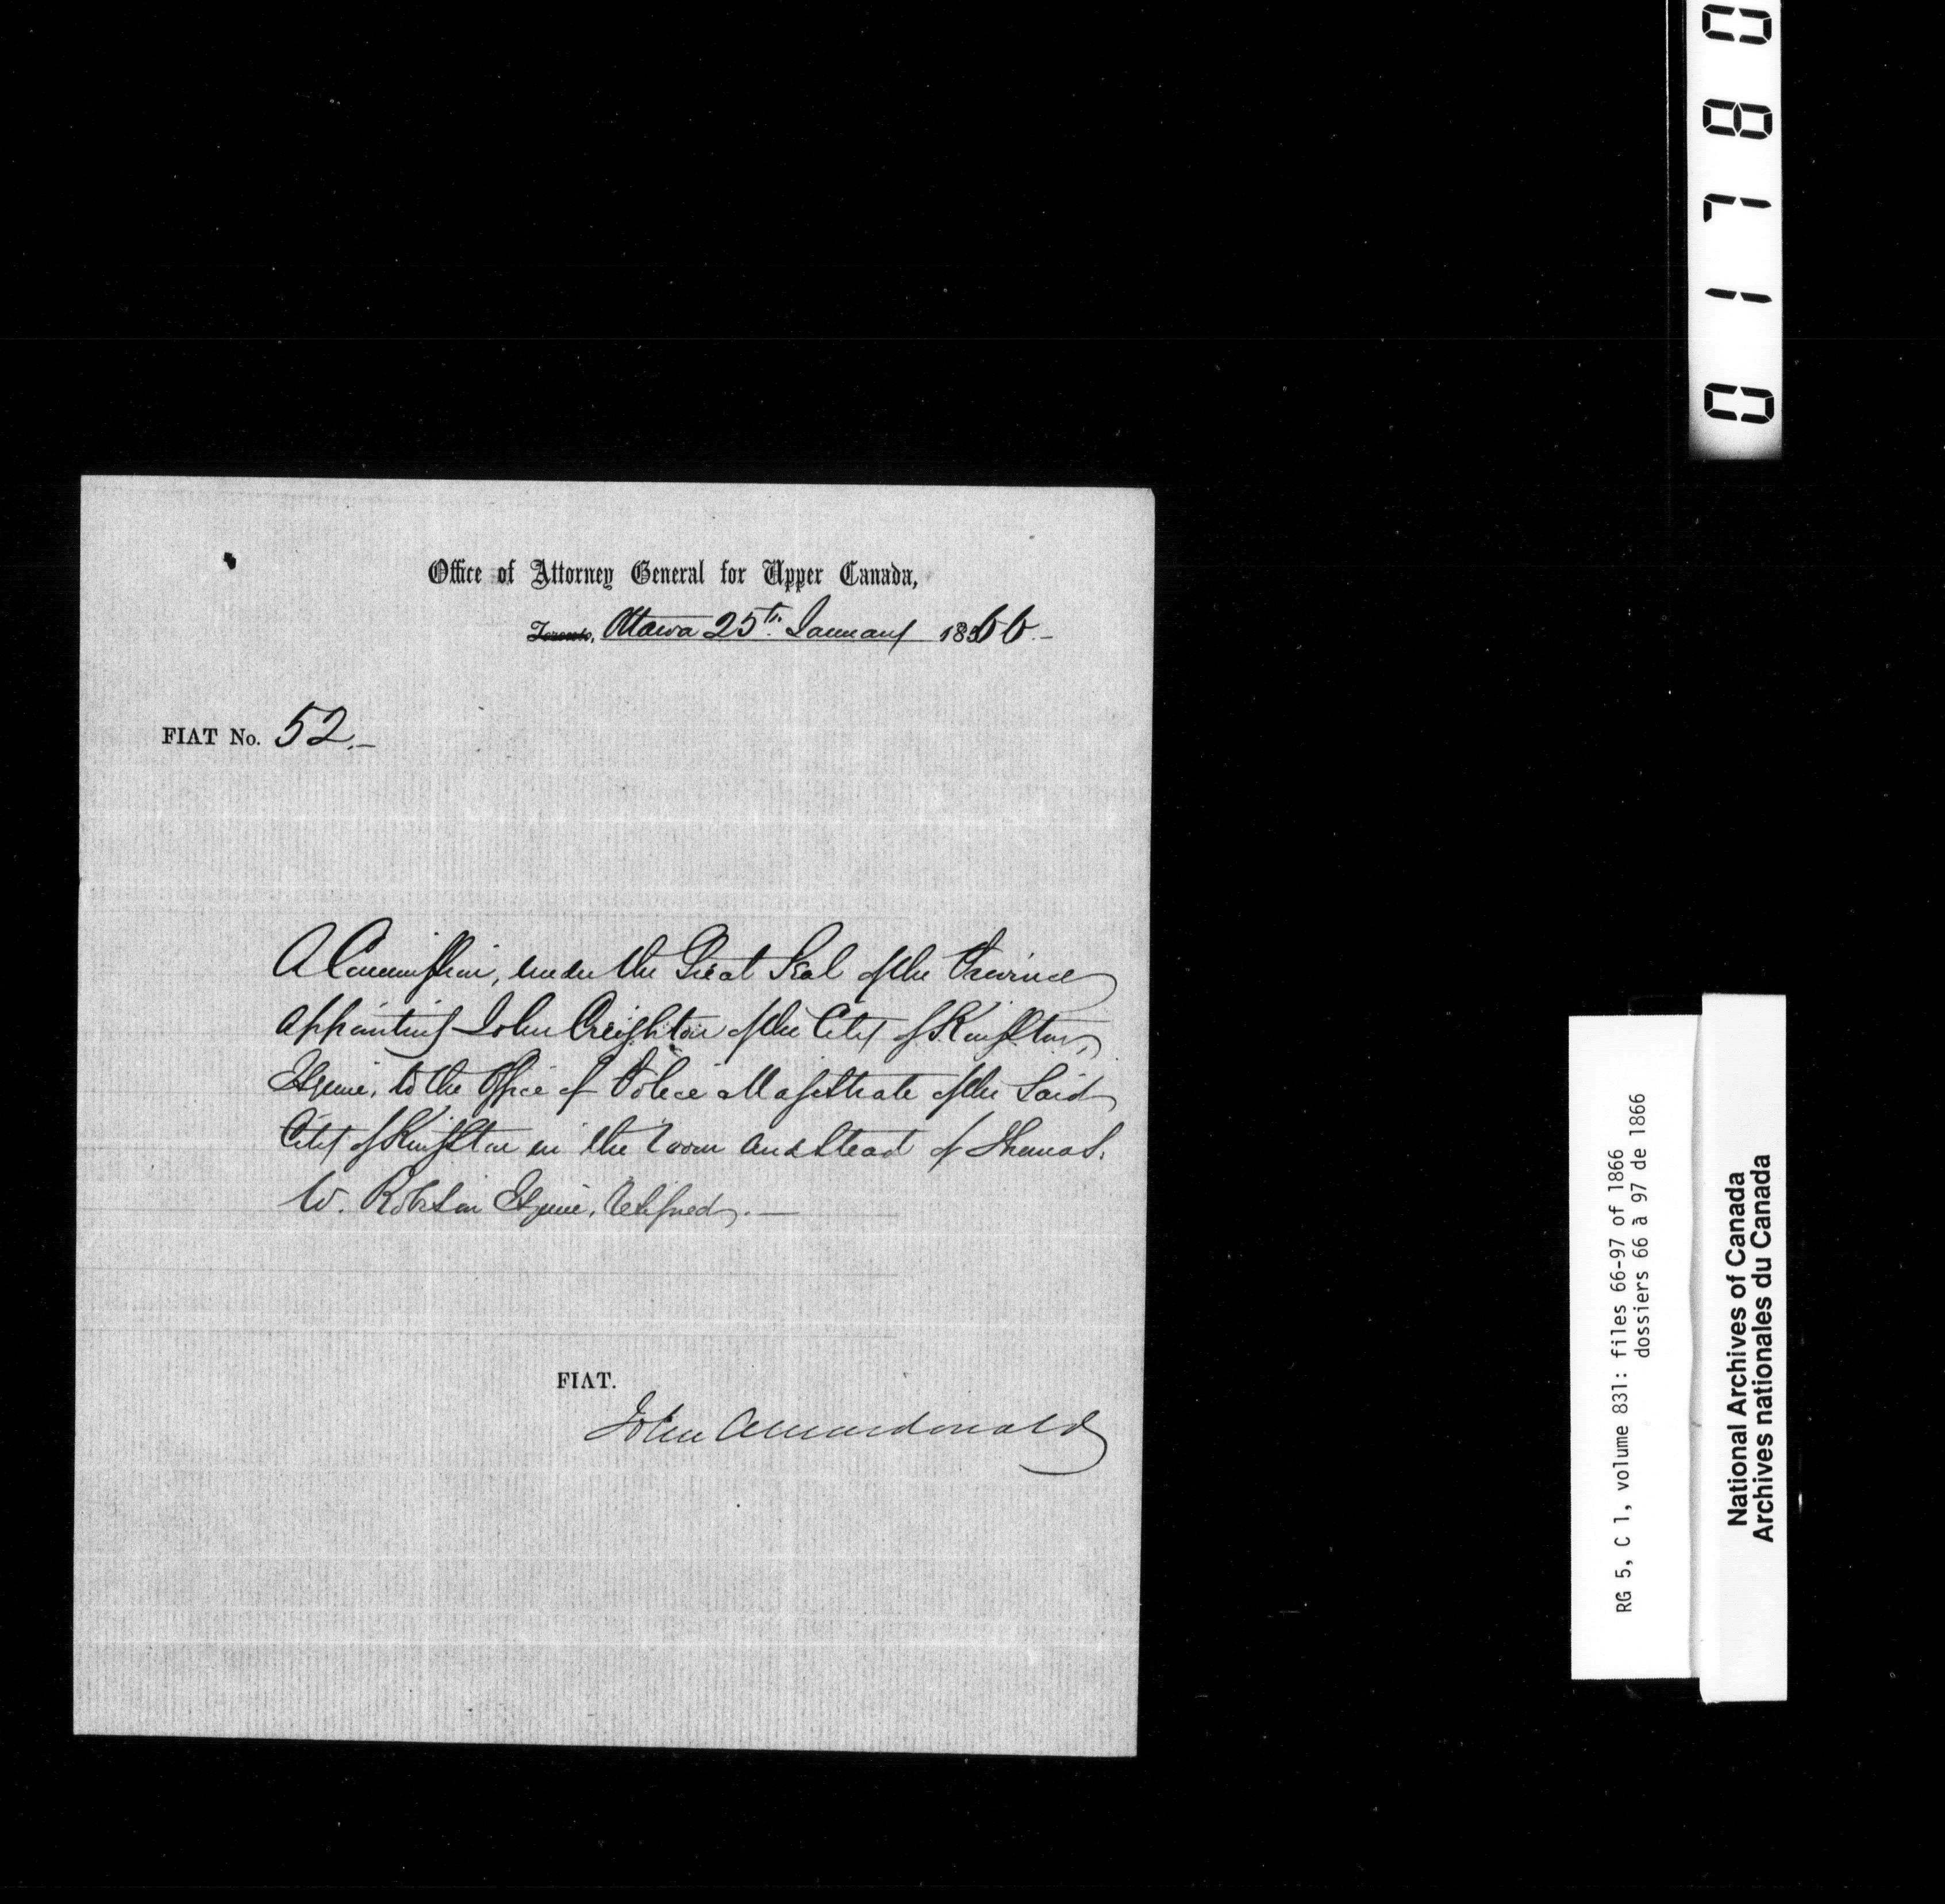 Office of Attorney General for Upper Canada,
Toronto, Ottawa 25th. January 1866.-
FIAT No. 52.-
A Commission, under the Great Seal of the Province
appointing John Creighton of the City of Kingston,
Esquire, to the Office of Police Magistrate of the Said
City of Kingston in the room and stead of Thomas.
W. Robison Esquire, resigned.-
FIAT.
John A Macdonald
01780
RG 5, C 1, volume 831: files 66-97 of 1866
dossiers 66 à 97 de 1866
National Archives of Canada
Archives nationales du Canada